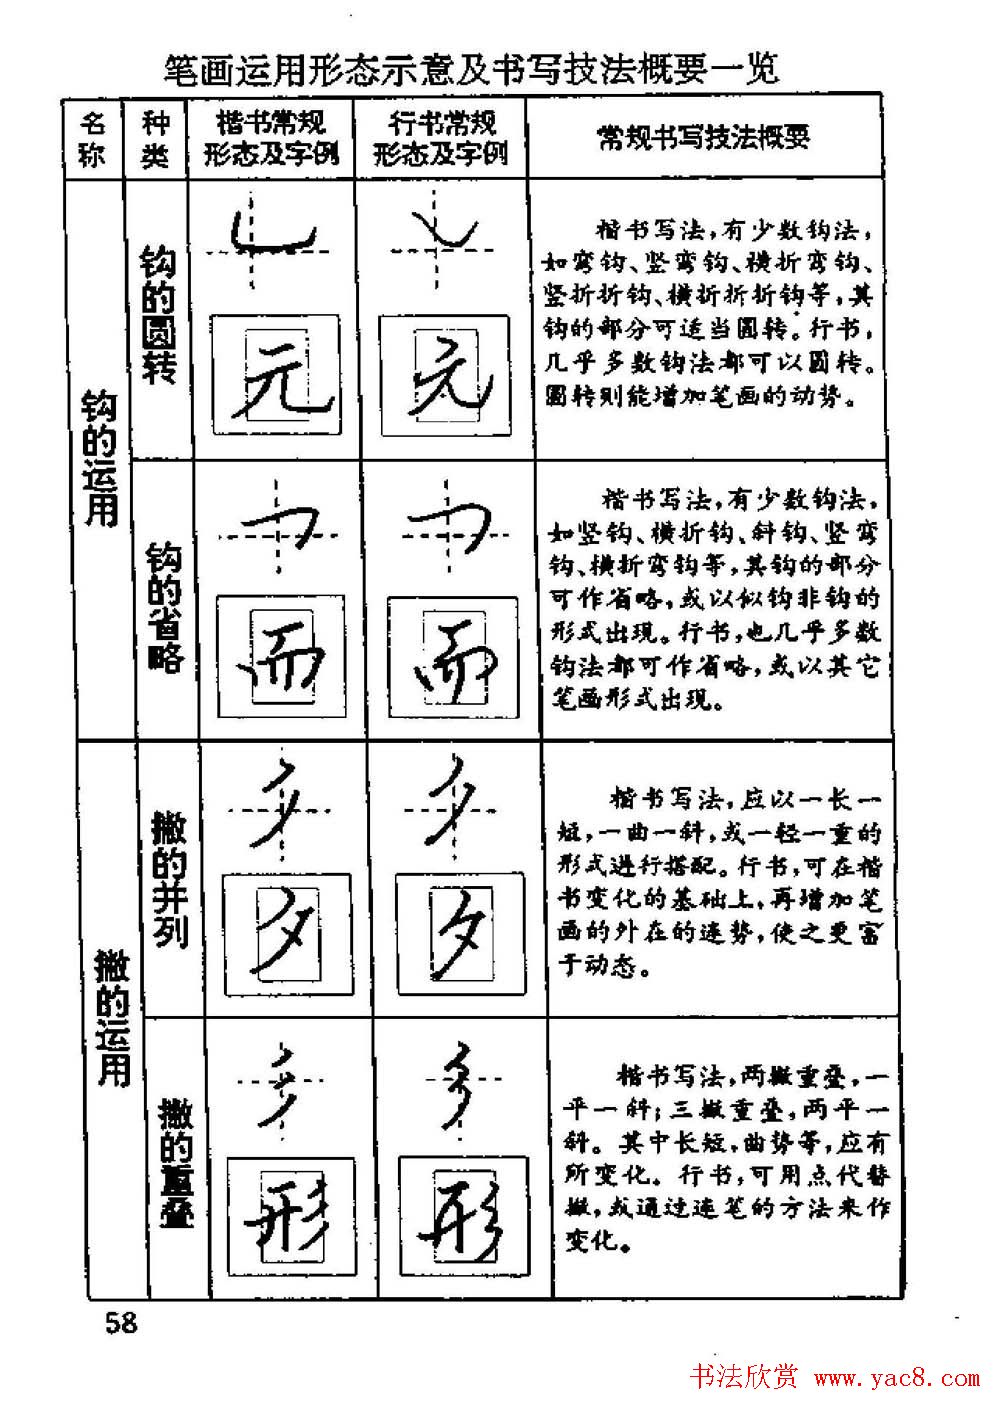 笔画运用形态示意及书写技法概要一览
名称
种类
楷书常规
形态及字例
行书常规
形态及字例
常规书写技法概要
钩的运用
钩的圆转
元
元
楷书写法,有少数钩法,
如弯钩、竖弯钩、横折弯钩、
竖折折钩、横折折折钩等,其
钩的部分可适当圆转。行书,
几乎多数钩法都可以圆转。
圆转则能增加笔画的动势。
钩的省略
而
而
楷书写法,有少数钩法,
如竖钩、横折钩、斜钩、竖弯
钩、横折弯钩等,其钩的部分
可作省略,或以似钩非钩的
形式出现。行书,也几乎多数
钩法都可作省略,或以其它
笔画形式出现。
撇的运用
撇的并列
夕
夕
楷书写法,应以一长一
短,一曲一斜,或一轻一重的
形式进行搭配。行书,可在楷
书变化的基础上,再增加笔
画的外在的连势,使之更富
于动态。
撇的重叠
形
形
楷书写法,两撇重叠,一
平一斜;三撇重叠,两平一
斜。其中长短,曲势等,应有
所变化。行书,可用点代替
撇,或通过连笔的方法来作
变化。
58
书法欣赏 www.yac8.com